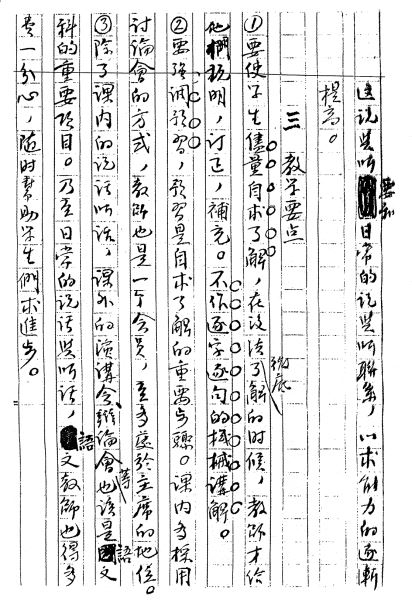 這说與听要和日常的说與听联系，以求能力的逐漸
提高。
三 教学要点
①要使学生儘量自求了解，在没法徹底了解的时候，教師才给
他們説明，订正，補充。不作逐字逐句的机械講解。
②要强調預習，預習是自求了解的重要步驟。课内多採用
討論會的方式，教師也是一个会員，至多處於主席的地位。
③除了课内的说话听话，课外的演講会、辯論會等也该是語文
科的重要项目。乃至日常的说话與听话，語文教師也得多
费一分心，随时幫助学生們求進步。